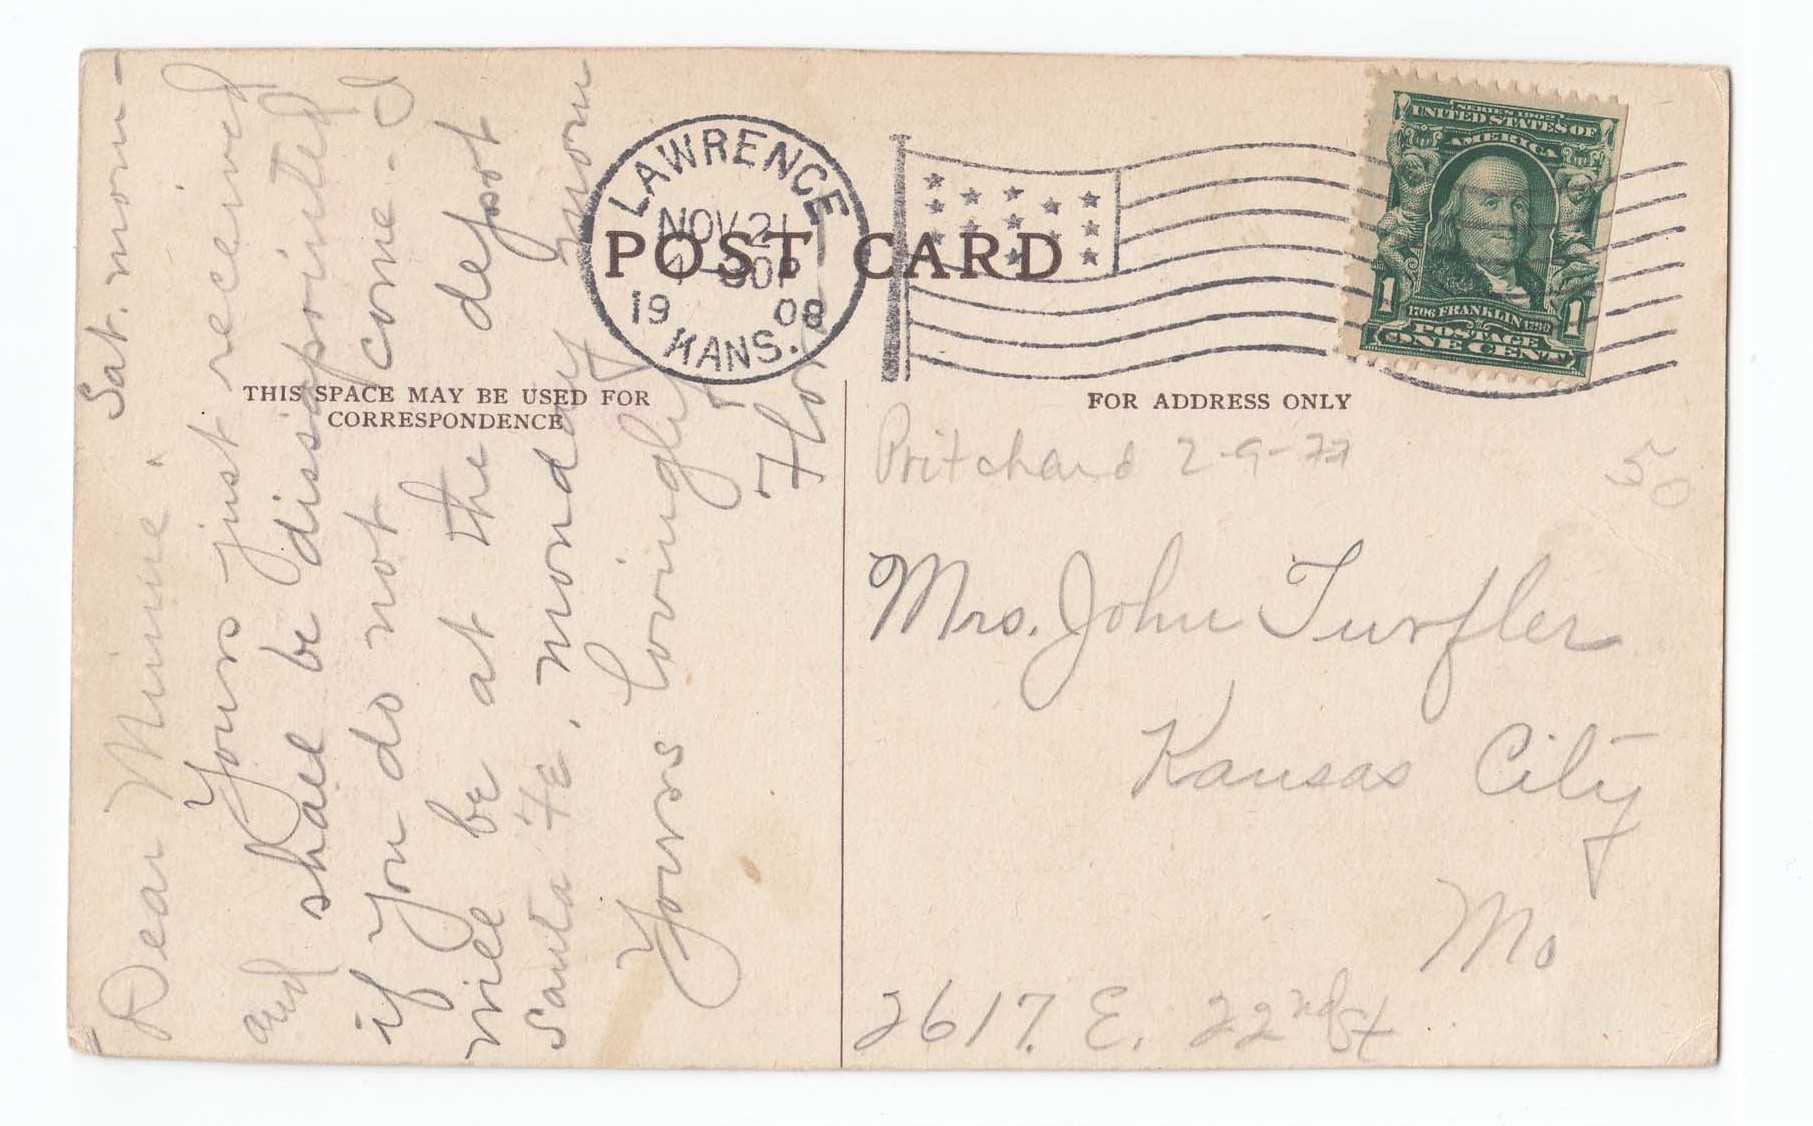 Sat. morn -
Dear Minnie.
Yours just received
and shall be dissapointed
if you do not come - I
will be at the depot
Santa Fe. monday morn
Yours lovingly
Flo
LAWRENCE
NOV 21
30P
19 08
KANS.
POST CARD
SERIES 1902
UNITED STATES OF
AMERICA
1 1
1706 FRANKLIN 1790
POSTAGE
ONE CENT
THIS SPACE MAY BE USED FOR
CORRESPONDENCE
FOR ADDRESS ONLY
Pritchard 2-9-77
50
Mrs. John Turfler
Kansas City
Mo
2617. E. 22nd St